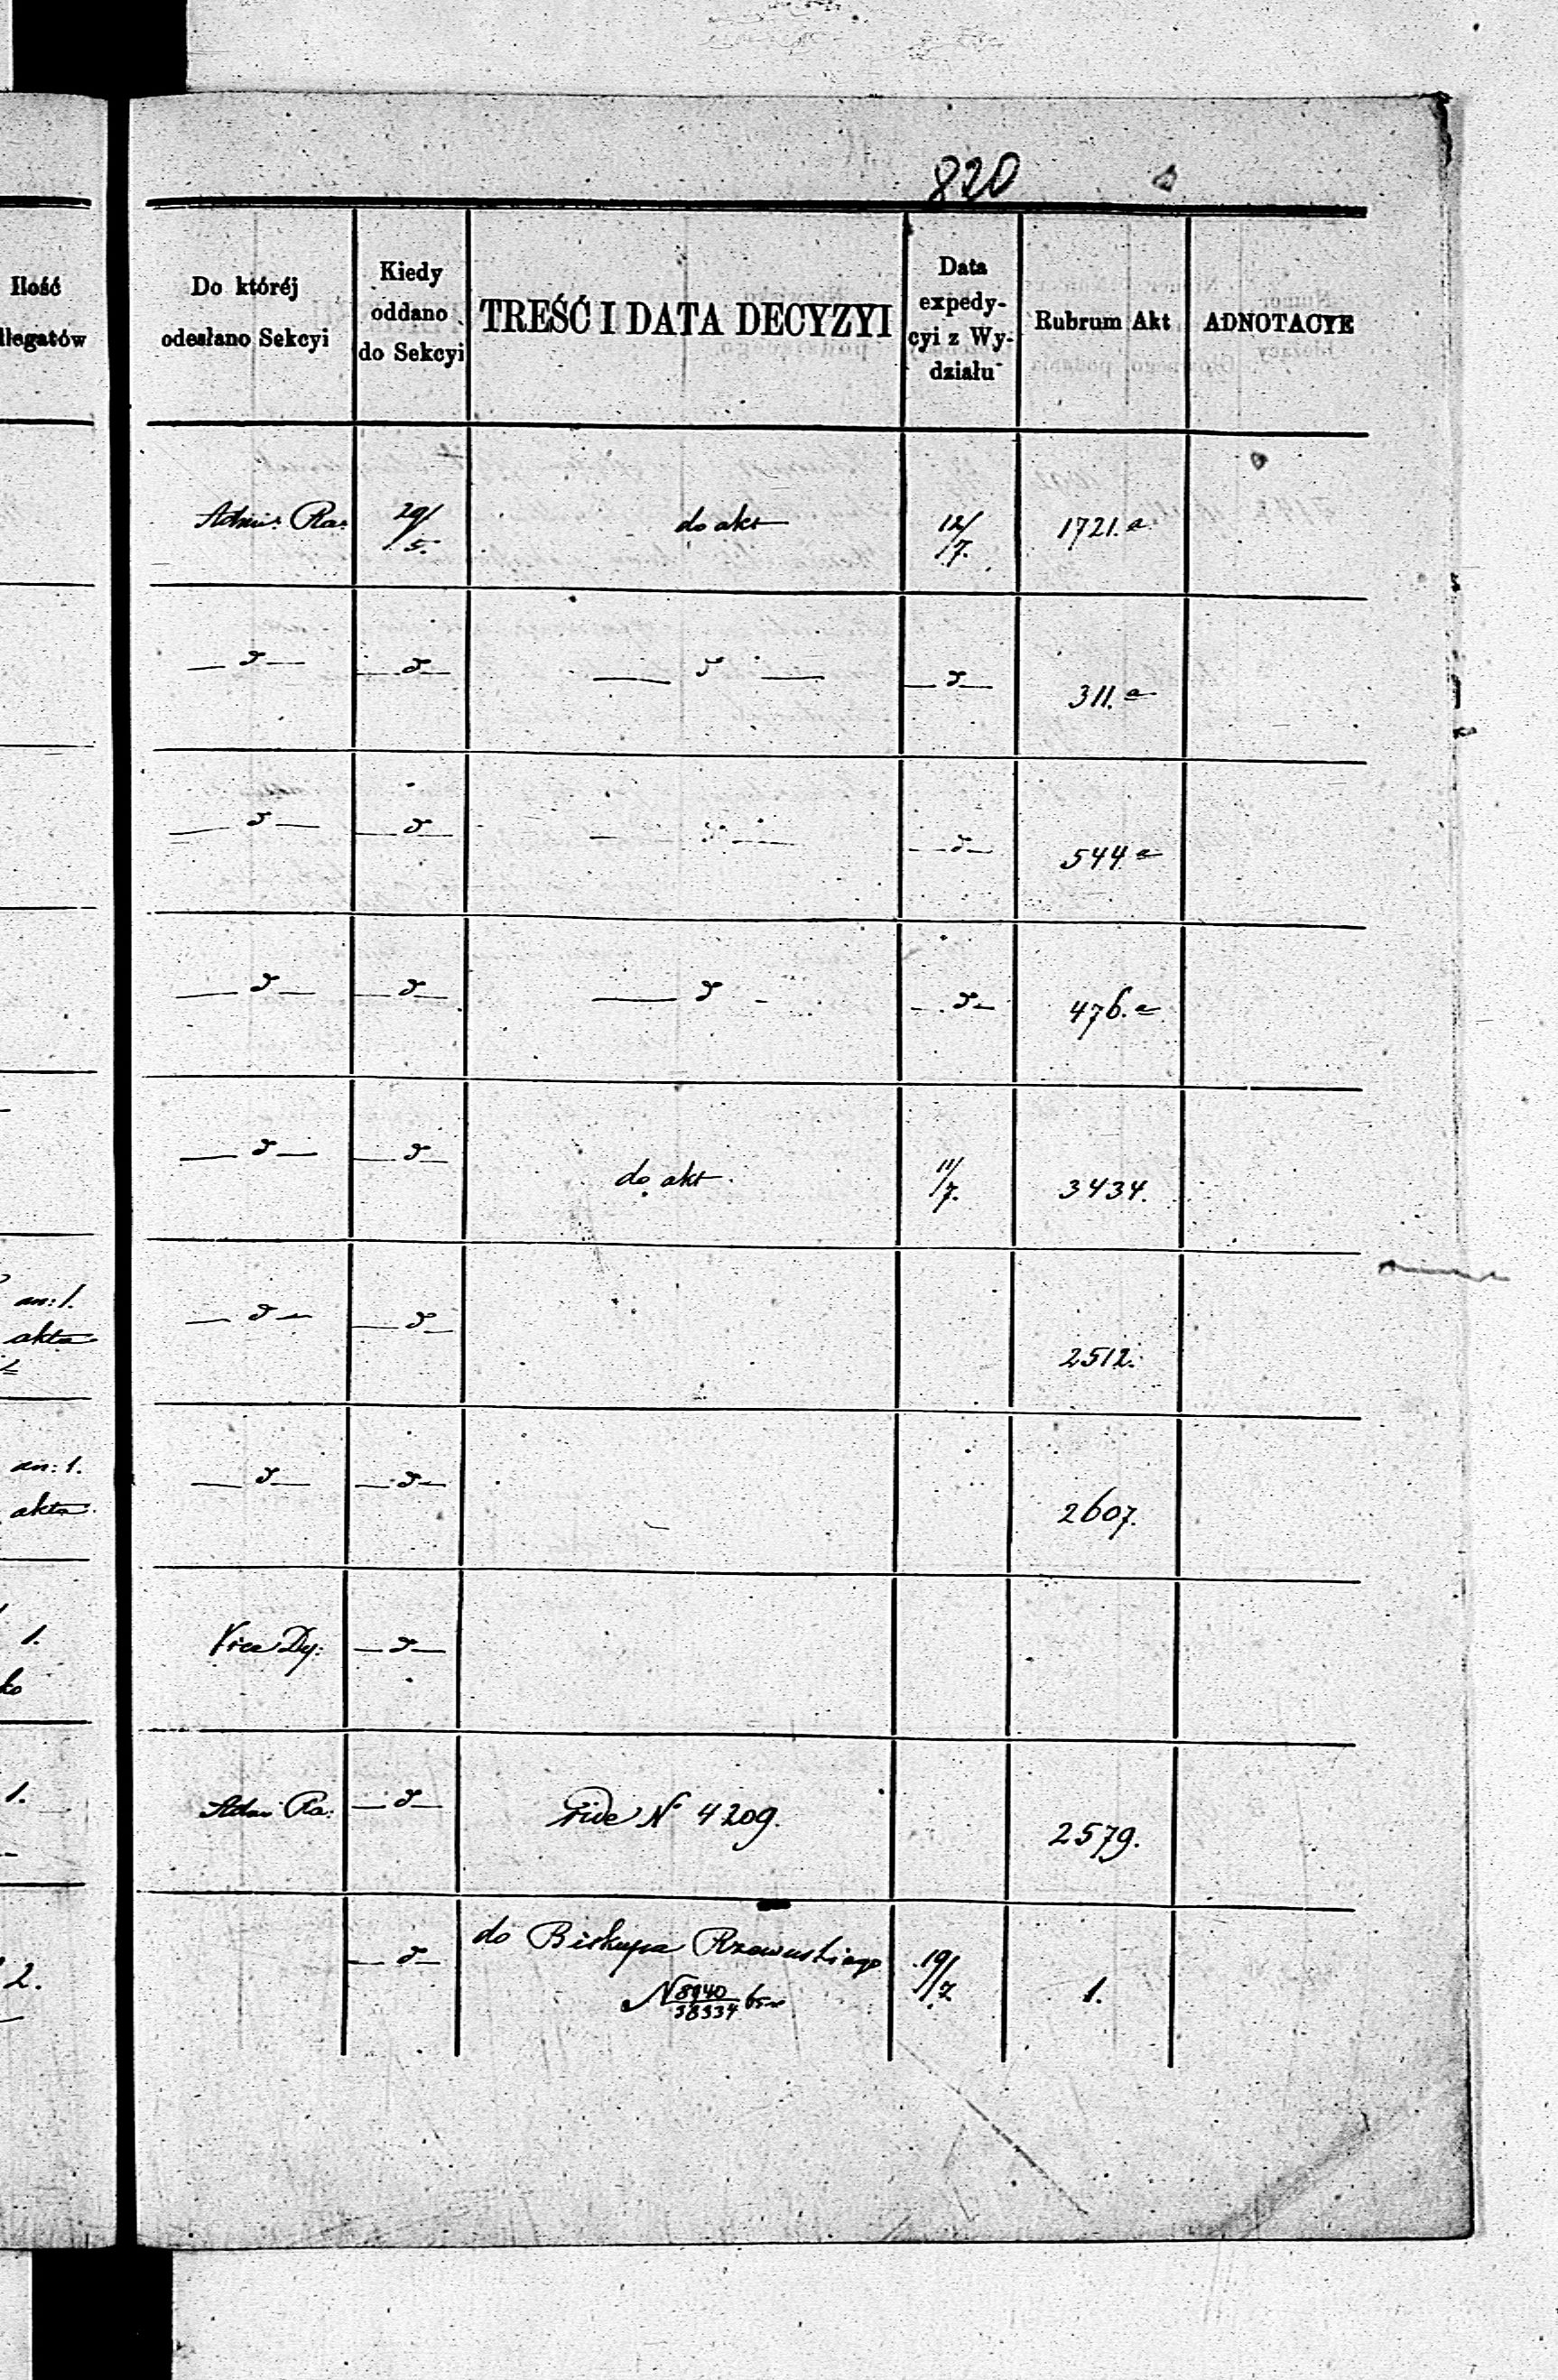 820
Ilość
llegatów
Do któréj
odesłano Sekcyi
Kiedy
oddano
do Sekcyi
TREŚĆ I DATA DECYZYI
Data
expedy-
cyi z Wy-
działu
Rubrum Akt
ADNOTACYE
Admi: Ra: 29/5. do akt 12/7. 1721.a
— d — — d — — d — — d — 311.a
— d — — d — — d — — d — 544.a
— d — — d — — d — — d — 476.a
— d — — d — do akt. 11/7. 3434.
an: 1.
akta
— d — — d — 2512.
an: 1.
akta.
— d — — d — 2607.
1.
Vice Dy: — d —
1. Adm: Ra: — d — vide N° 4209. 2579.
2. — d — do Biskupa Rzewuskiego 19/7 1.
N 8940/38334